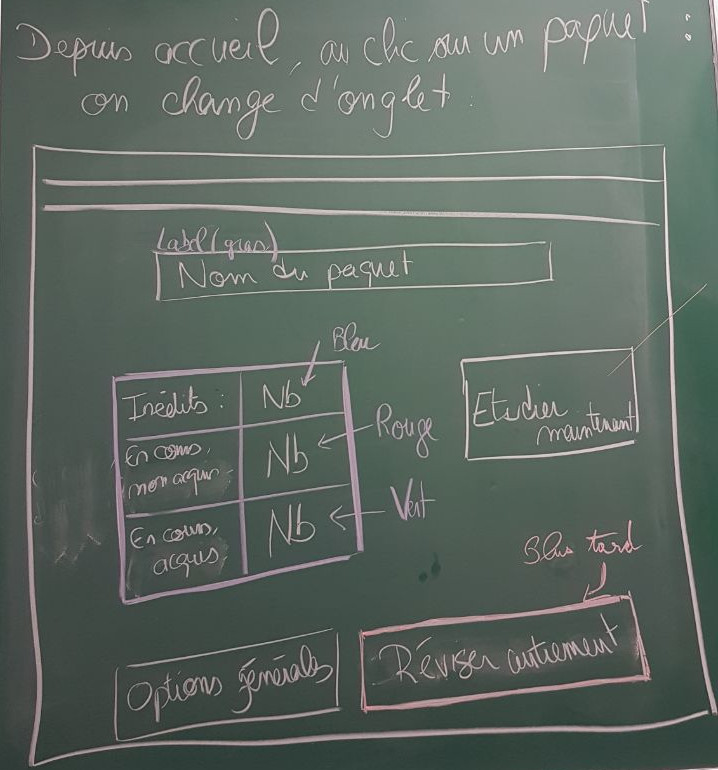 Depuis accueil, au clic sur un paquet :
on change d'onglet :
Label (gras)
Nom du paquet
Bleu
Inédits : Nb
Rouge
En cours, non acquis Nb
Vert
En cours, acquis Nb
Etudier
maintenant
Plus tard
Options générales
Réviser autrement